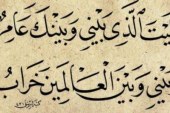 ليت الذي بيني وبينك عامر
بيني وبين العالمين خراب